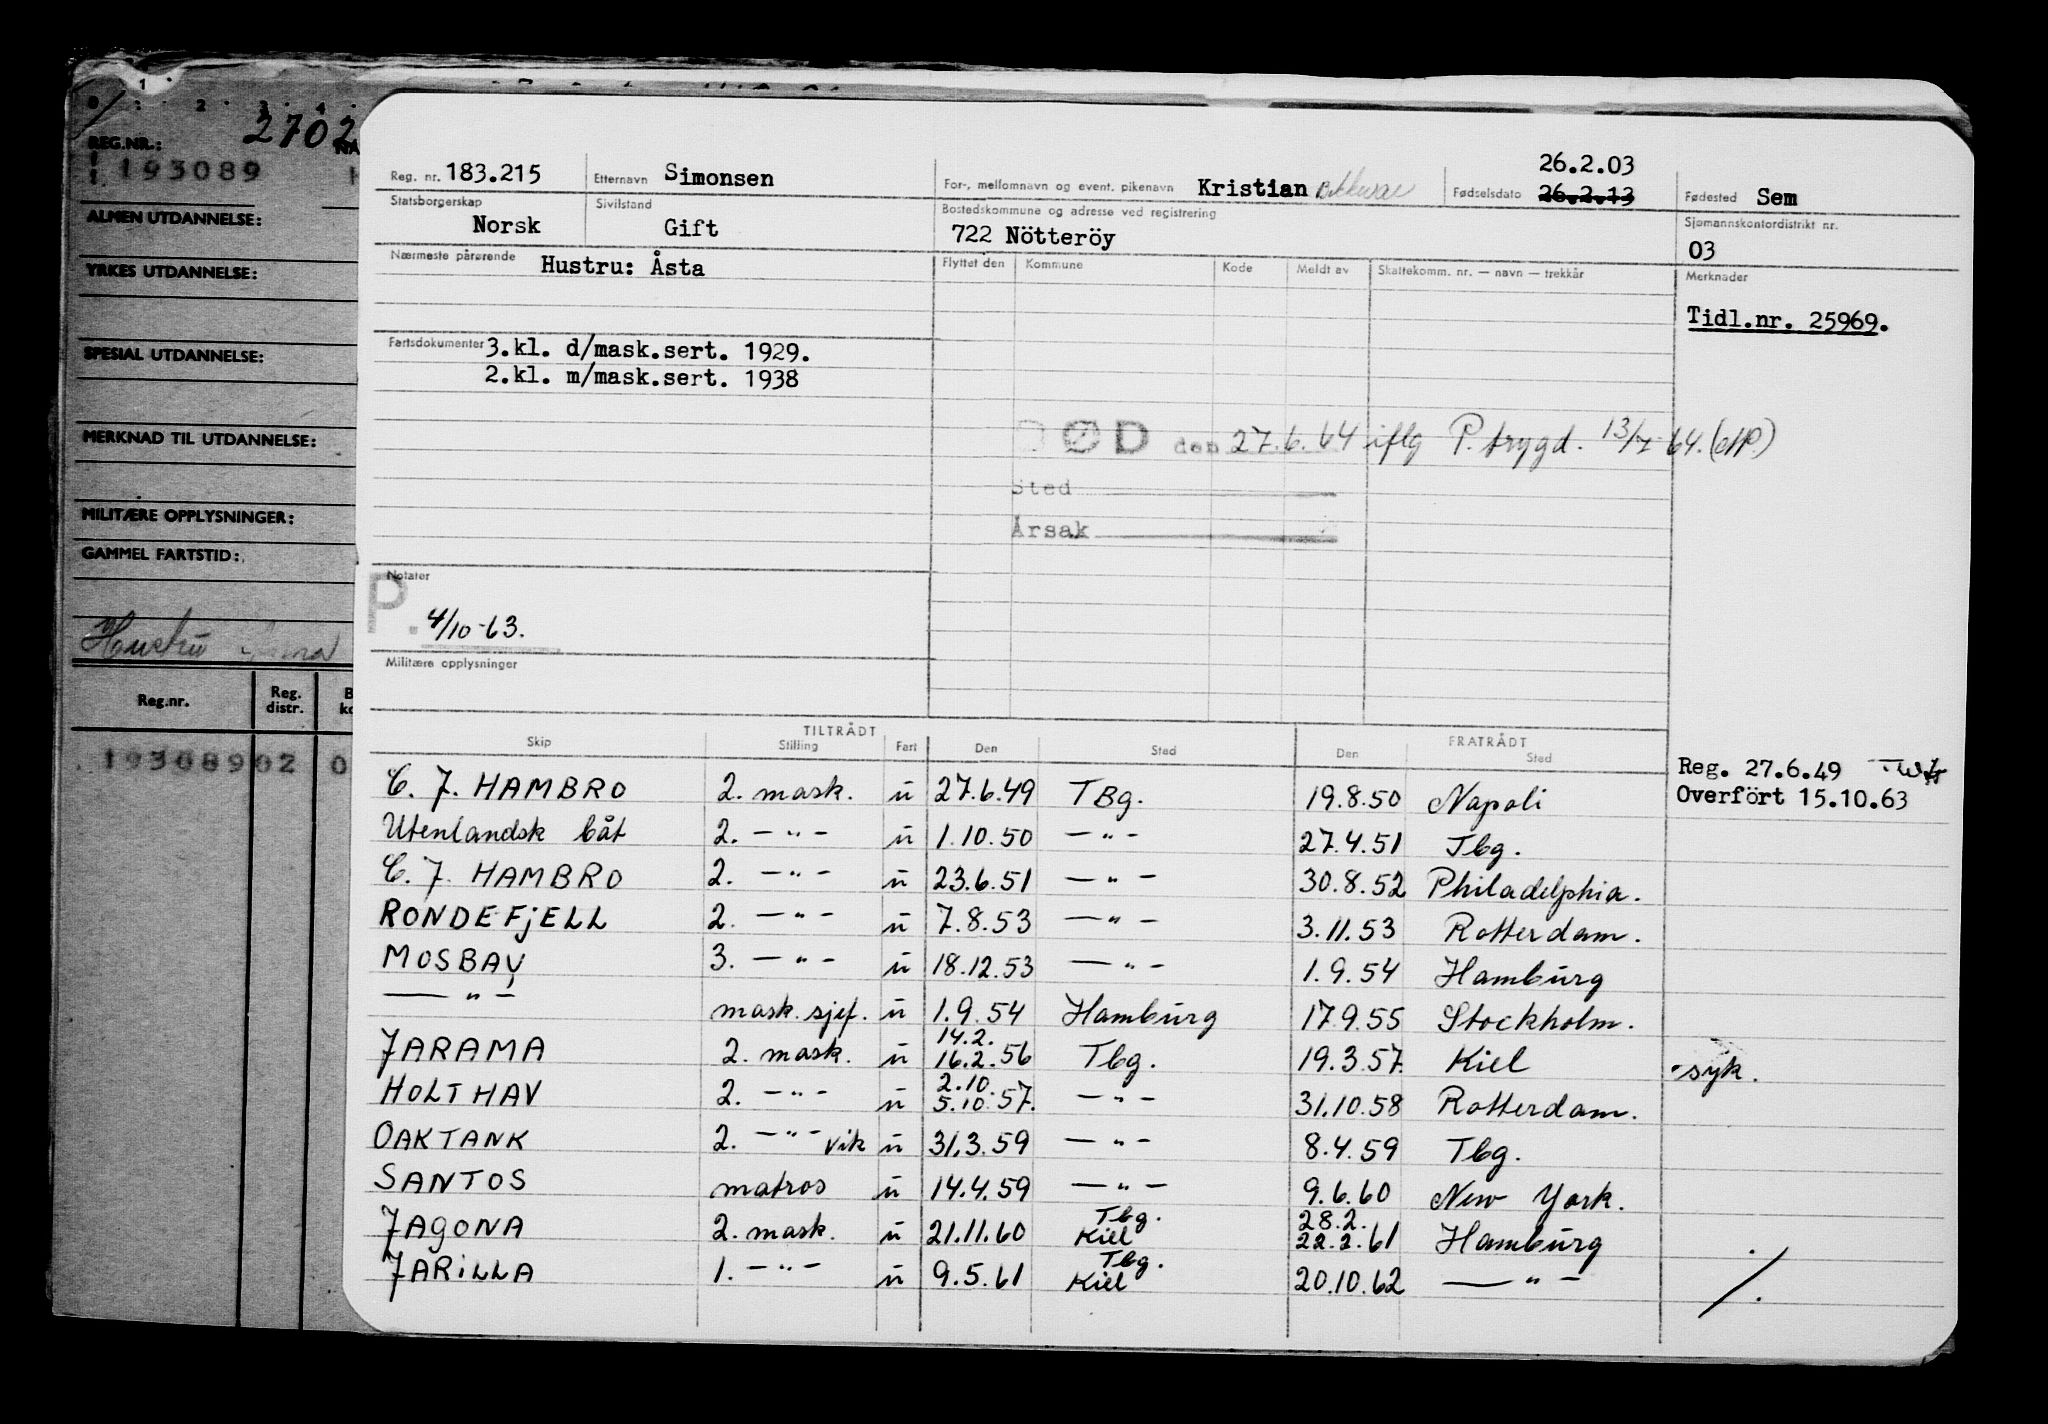 1
0 : 2 . 3 . 4 .
2702
REG.NR.: NA
193089
ALMEN UTDANNELSE:
YRKES UTDANNELSE:
SPESIAL UTDANNELSE:
MERKNAD TIL UTDANNELSE:
MILITÆRE OPPLYSNINGER:
GAMMEL FARTSTID:
Hustru
Reg.nr. Reg. distr.
193089 02 0
Reg. nr. 183.215 Etternavn Simonsen For-, mellomnavn og event. pikenavn Kristian Fødselsdato 26.2.03 26.2.13 Fødested Sem
Statsborgerskap Norsk Sivilstand Gift Bostedskommune og adresse ved registrering 722 Nötteröy Sjømannskontordistrikt nr. 03
Nærmeste pårørende Hustru: Åsta Flyttet den Kommune Kode Meldt av Skattekomm. nr. — navn — trekkår Merknader
Tidl.nr. 25969.
Fartsdokumenter 3.kl. d/mask.sert. 1929.
2.kl. m/mask.sert. 1938
DØD den 27.6.64 iflg P. trygd. 13/7-64. (
Sted
Årsak
Notater
P. 4/10-63.
Militære opplysninger
TILTRÅDT FRATRÅDT
Skip Stilling Fart Den Sted Den Sted
Reg. 27.6.49
Overfört 15.10.63
C. J. HAMBRO 2. mask. u 27.6.49 TBg. 19.8.50 Napoli
Utenlandsk båt 2. —"— u 1.10.50 —"— 27.4.51 Tbg.
C. J. HAMBRO 2. —"— u 23.6.51 —"— 30.8.52 Philadelphia.
RONDEFJELL 2. —"— u 7.8.53 —"— 3.11.53 Rotterdam.
MOSBAY 3. —"— u 18.12.53 —"— 1.9.54 Hamburg
—"— mask.sjef. u 1.9.54 Hamburg 17.9.55 Stockholm.
JARAMA 2. mask. u 14.2. 16.2.56 Tbg. 19.3.57. Kiel syk.
HOLTHAV 2. —"— u 2.10. 5.10.57. —"— 31.10.58 Rotterdam.
OAKTANK 2. —"— vik u 31.3.59 —"— 8.4.59 Tbg.
SANTOS matros u 14.4.59 —"— 9.6.60 New York.
JAGONA 2. mask. u 21.11.60 Tbg. Kiel 28.2. 22.2.61 Hamburg
JARILLA 1. —"— u 9.5.61 Tbg. Kiel 20.10.62 —"— ./.